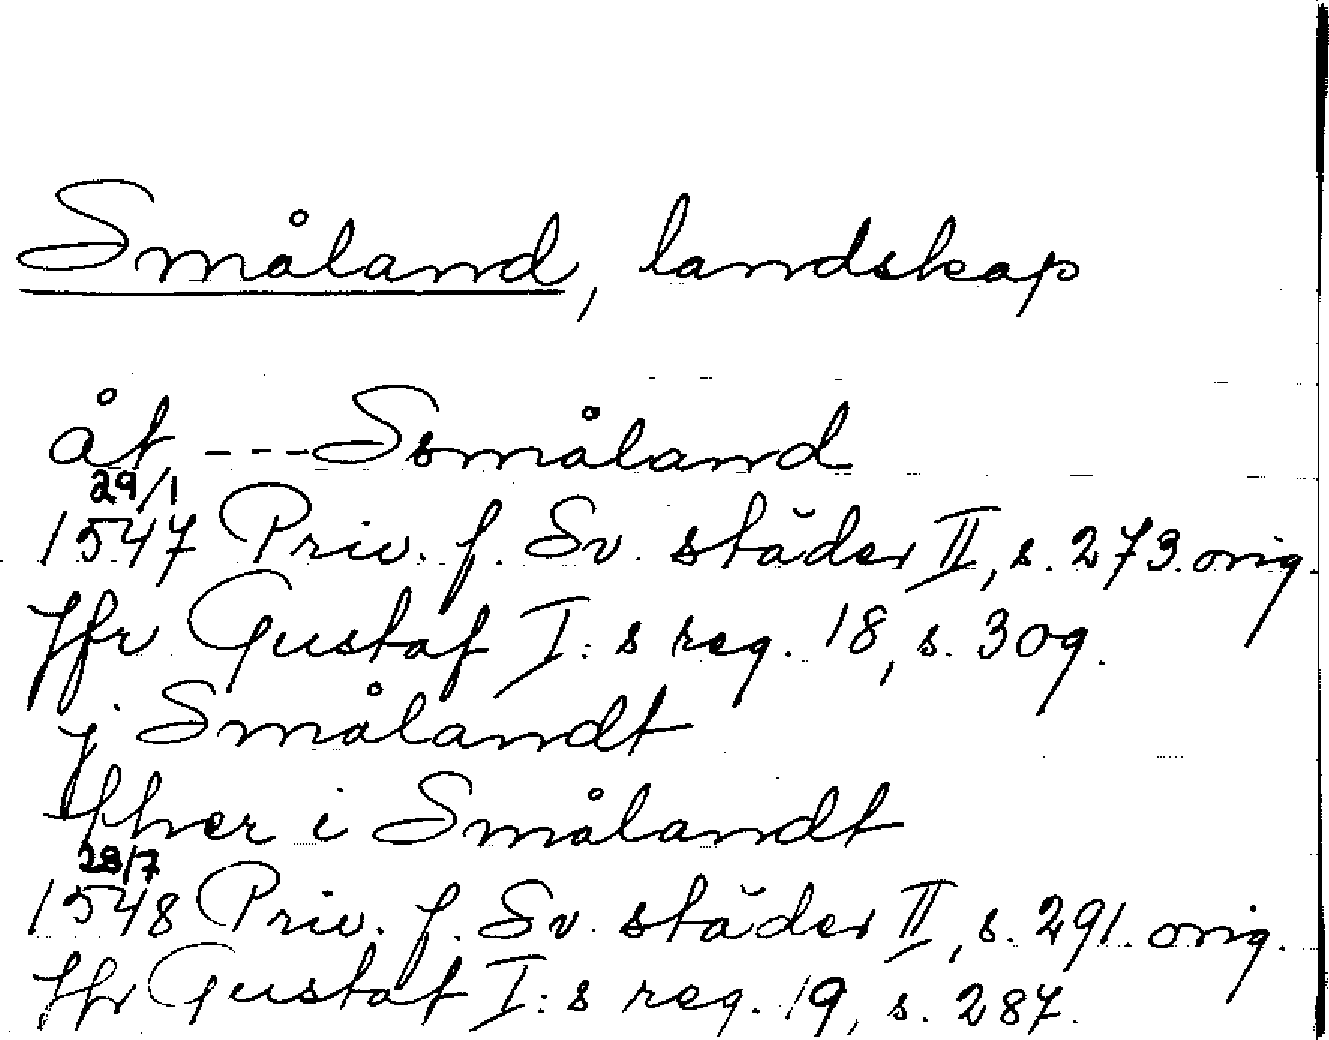 Småland, landskap
åt --- Ssmåland
29/1
1547 Priv. f. Sv. städer II, s. 273. orig.
Jfr Gustaf I:s reg. 18, s. 309.
j Smålandt
hher i Smålandt
28/7
1548 Priv. f. Sv. städer II, s. 291. orig.
Jfr Gustaf I:s reg. 19, s. 287.